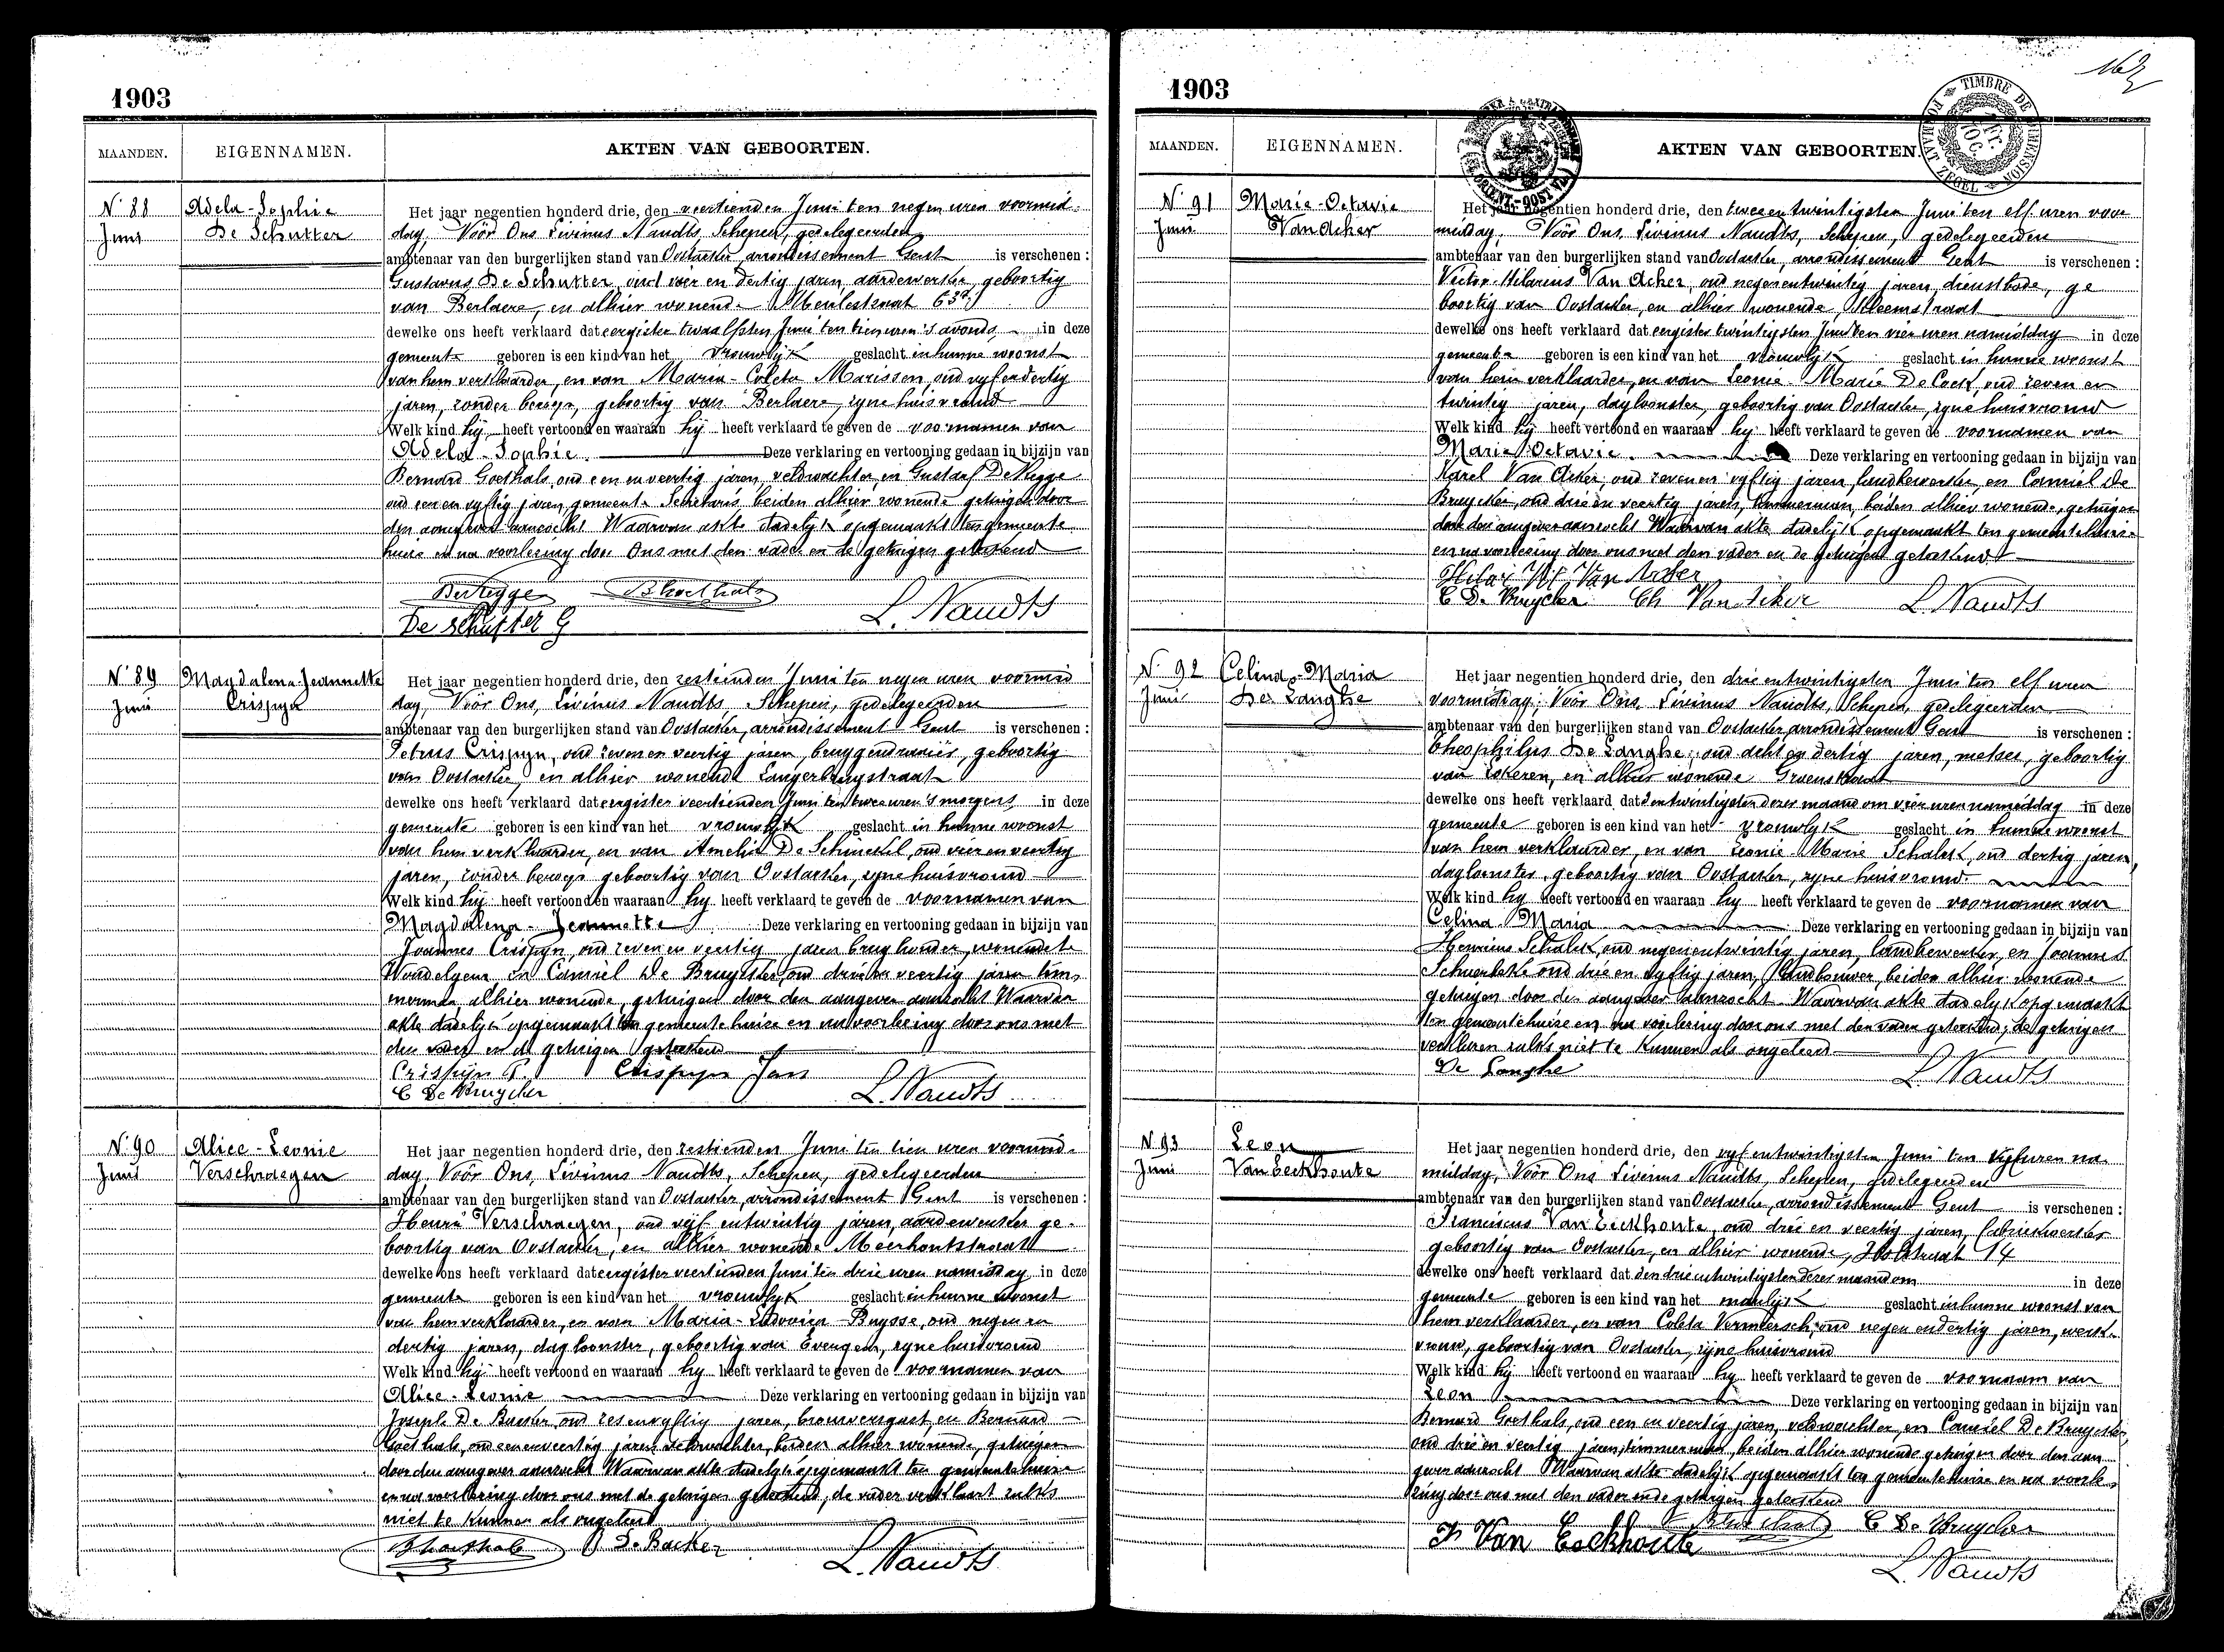 1903
MAANDEN. EIGENNAMEN. AKTEN VAN GEBOORTEN.
N° 88
Juni
Adela-Sophie
De Schutter
Het jaar negentien honderd drie, den veertienden Juni ten negen uren voormid-
dag, Vóór Ons Livinus Naudts Schepen, gedelegeerden
ambtenaar van den burgerlijken stand van Oostacker, arrondissement Gent is verschenen :
Gustavus De Schutter, oud vier en dertig jaren, aardewerker, geboortig
van Berlaere, en alhier wonende Meulestraat 63a,
dewelke ons heeft verklaard dat eergister twaalfsten Juni ten tien uren 's avonds, in deze
gemeente geboren is een kind van het vrouwlijk geslacht in hunne woonst
van hem verklaarder, en van Maria-Coleta Marissen, oud vyf en dertig
jaren, zonder beroep, geboortig van Berlaere, zyne huisvrouw
Welk kind hij heeft vertoond en waaraan hij heeft verklaard te geven de voornamen van
Adela-Sophie. Deze verklaring en vertooning gedaan in bijzijn van
Bernard Goethals, oud een en veertig jaren, veldwachter, en Gustaaf De Rugge
oud een en vyftig jaren, gemeente Secretaris, beiden alhier wonende getuigen door
den aangever aanzocht Waarvan akte dadelijk opgemaakt ten gemeente
huize en na voorlezing door Ons met den vader en de getuigen geteekend
B Goethals
De Schutter G
L. Naudts
N° 89
Juni
Magdalena-Jeannette
Crispyn
Het jaar negentien honderd drie, den zestienden Juni ten negen uren voormid
dag, Vóór Ons, Livinus Naudts Schepen, gedelegeerden
ambtenaar van den burgerlijken stand van Oostacker, arrondissement Gent is verschenen :
Petrus Crispyn, oud zeven en veertig jaren, bruggendraaier, geboortig
van Oostacker, en alhier wonende Langerbrugstraat
dewelke ons heeft verklaard dat eergister veertienden Juni ten twee uren 's morgens in deze
gemeente geboren is een kind van het vrouwlijk geslacht in hunne woonst
van hem verklaarder, en van Amelia De Schinckel, oud vier en veertig
jaren, zonder beroep geboortig van Oostacker, zyne huisvrouw
Welk kind hij heeft vertoond en waaraan hy heeft verklaard te geven de voornamen van
Magdalena-Jeannette Deze verklaring en vertooning gedaan in bijzijn van
Joannes Crispyn, oud zeven en veertig jaren brughouder, wonende te
Wondelgem en Camiel De Bruycker, oud drie en veertig jaren tim-
merman alhier wonende, getuigen door den aangever aanzocht Waarvan
akte dadelijk opgemaakt ten gemeente huize en na voorlezing door ons met
den vader en de getuigen geteekend
Crispijn P. Crispyn Jan
C De Bruycker L. Naudts
N° 90
Juni
Alice-Leonie
Verschraegen
Het jaar negentien honderd drie, den zestienden Juni ten tien uren voormid-
dag, Vóór Ons, Livinus Naudts, Schepen, gedelegeerden
ambtenaar van den burgerlijken stand van Oostacker, arrondissement Gent is verschenen :
Henri Verschraegen, oud vijf entwintig jaren, aardewerker ge-
boortig van Oostacker, en alhier wonende Meerhoutstraat
dewelke ons heeft verklaard dat eergister veertienden Juni ten drie uren namiddag in deze
gemeente geboren is een kind van het vrouwlyk geslacht in hunne woonst
van hem verklaarder, en van Maria-Ludovica Buysse, oud negen en
dertig jaren, dagloonster, geboortig van Evergem, zyne huisvrouw
Welk kind hij heeft vertoond en waaraan hy heeft verklaard te geven de voornamen van
Alice-Leonie Deze verklaring en vertooning gedaan in bijzijn van
Joseph De Backer, oud zes en vyftig jaren, brouwersgast, en Bernard
Goethals, oud een en veertig jaren veldwachter, beiden alhier wonende, getuigen
door den aangever aanzocht Waarvan akte dadelyk opgemaakt ten gemeentehuize
en na voorlezing door ons met de getuigen geteekend, de vader verklaart zulks
niet te kunnen als ongeleerd
B Goethals De Backer L. Naudts
1903
MAANDEN. EIGENNAMEN. AKTEN VAN GEBOORTEN.
TIMBRE DE DIMENSION FORMAAT ZEGEL
N° 91
Juni
Marie-Octavie
Van Acker
Het jaar negentien honderd drie, den twee en twintigsten Juni ten elf uren voor
middag, Vóór Ons, Livinus Naudts, Schepen, gedelegeerden
ambtenaar van den burgerlijken stand van Oostacker, arrondissement Gent is verschenen :
Victor-Hilarius Van Acker, oud negenentwintig jaren, dienstbode, ge
boortig van Oostacker, en alhier wonende,
dewelke ons heeft verklaard dat eergister twintigsten Juni ten vier uren namiddag in deze
gemeente geboren is een kind van het vrouwlijk geslacht in hunne woonst
van hem verklaarder, en van Leonie-Marie De Cock, oud zeven en
twintig jaren, dagloonster, geboortig van Oostacker, zyne huisvrouw
Welk kind hij heeft vertoond en waaraan hy heeft verklaard te geven de voornamen van
Marie-Octavie. Deze verklaring en vertooning gedaan in bijzijn van
Karel Van Acker, oud zeven en vyftig jaren, landbewerker, en Camiel De
Bruycker, oud drie en veertig jaren, timmerman, beiden alhier wonende, getuigen
door den aangever aanzocht Waarvan akte dadelijk opgemaakt ten gemeentehuize
en na voorlezing door ons met den vader en de getuigen geteekend
Van Acker
C De Bruycker Ch Van Acker L. Naudts
N° 92
Juni
Celina-Maria
De Langhe
Het jaar negentien honderd drie, den drie entwintigsten Juni ten elf uren
voormiddag, Vóór Ons, Livinus Naudts, Schepen, gedelegeerden
ambtenaar van den burgerlijken stand van Oostacker, arrondissement Gent is verschenen :
Theophilus De Langhe, oud acht en dertig jaren, metser, geboortig
van Lokeren, en alhier wonende Groenstraat
dewelke ons heeft verklaard dat den twintigsten dezer maand om vier uren namiddag in deze
gemeente geboren is een kind van het vrouwlyk geslacht in hunne woonst
van hem verklaarder, en van Leonie Marie Schalck, oud dertig jaren,
dagloonster, geboortig van Oostacker, zyne huisvrouw.
Welk kind hy heeft vertoond en waaraan hy heeft verklaard te geven de voornamen van
Celina Maria Deze verklaring en vertooning gedaan in bijzijn van
Henricus Schalck, oud negenentwintig jaren, landbewerker, en Joannes
oud drie en vyftig jaren, landbouwer, beiden alhier wonende
getuigen door den aangever aanzocht Waarvan akte dadelyk opgemaakt
ten gemeentehuize en na voorlezing door ons met den vader geteekend, de getuigen
verklaren zulks niet te kunnen als ongeleerd
De Langhe L. Naudts
N° 93
Juni
Leon
Van Eeckhoute
Het jaar negentien honderd drie, den vyf entwintigsten Juni ten vyf uren na-
middag, Vóór Ons Livinus Naudts, Schepen, gedelegeerden
ambtenaar van den burgerlijken stand van Oostacker, arrondissement Gent is verschenen :
Franciscus Van Eeckhoute, oud drie en veertig jaren, fabriekwerker
geboortig van Oostacker, en alhier wonende, 14
dewelke ons heeft verklaard dat den drie entwintigsten dezer maand om in deze
gemeente geboren is een kind van het manlijk geslacht in hunne woonst van
hem verklaarder, en van Coleta Vermeersch, oud negen en dertig jaren, werk-
vrouw, geboortig van Oostacker, zijne huisvrouw
Welk kind hij heeft vertoond en waaraan hy heeft verklaard te geven de voornaam van
Leon Deze verklaring en vertooning gedaan in bijzijn van
Bernard Goethals, oud een en veertig jaren, veldwachter, en Camiel De Bruycker,
oud drie en veertig jaren, timmerman, beiden alhier wonende getuigen door den aan
gever aanzocht Waarvan akte dadelijk opgemaakt ten gemeente huize en na voorle-
zing door ons met den vader en de getuigen geteekend
Fr Van Eeckhoute B Goethals C De Bruycker
L. Naudts